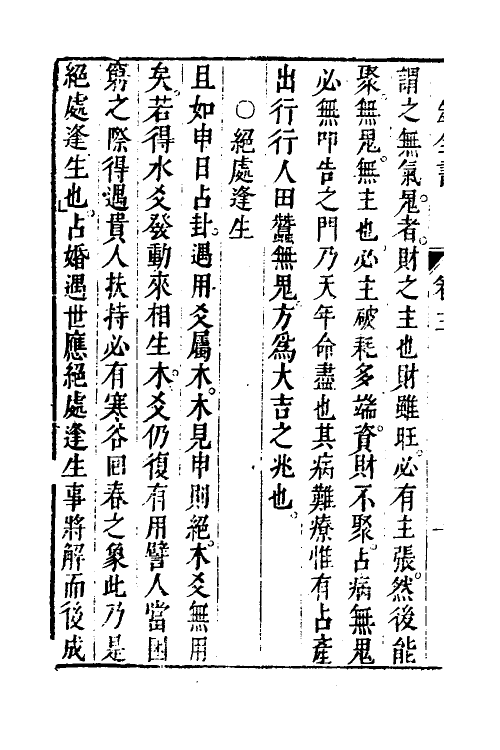 謂之無氣鬼者財之主也財雖旺必有主張然後能
聚無鬼無主也必主破耗多端資財不聚占病無鬼
必無叩告之門乃天年命盡也其病難療惟有占產
出行行人田蠶無鬼方為大吉之兆也
○絕處逢生
且如申日占卦遇用爻屬木木見申則絕木爻無用
矣若得水爻發動來相生木爻仍復有用譬人當困
窮之際得遇貴人扶持必有寒谷回春之象此乃是
絕處逢生也占婚遇世應絕處逢生事將解而後成